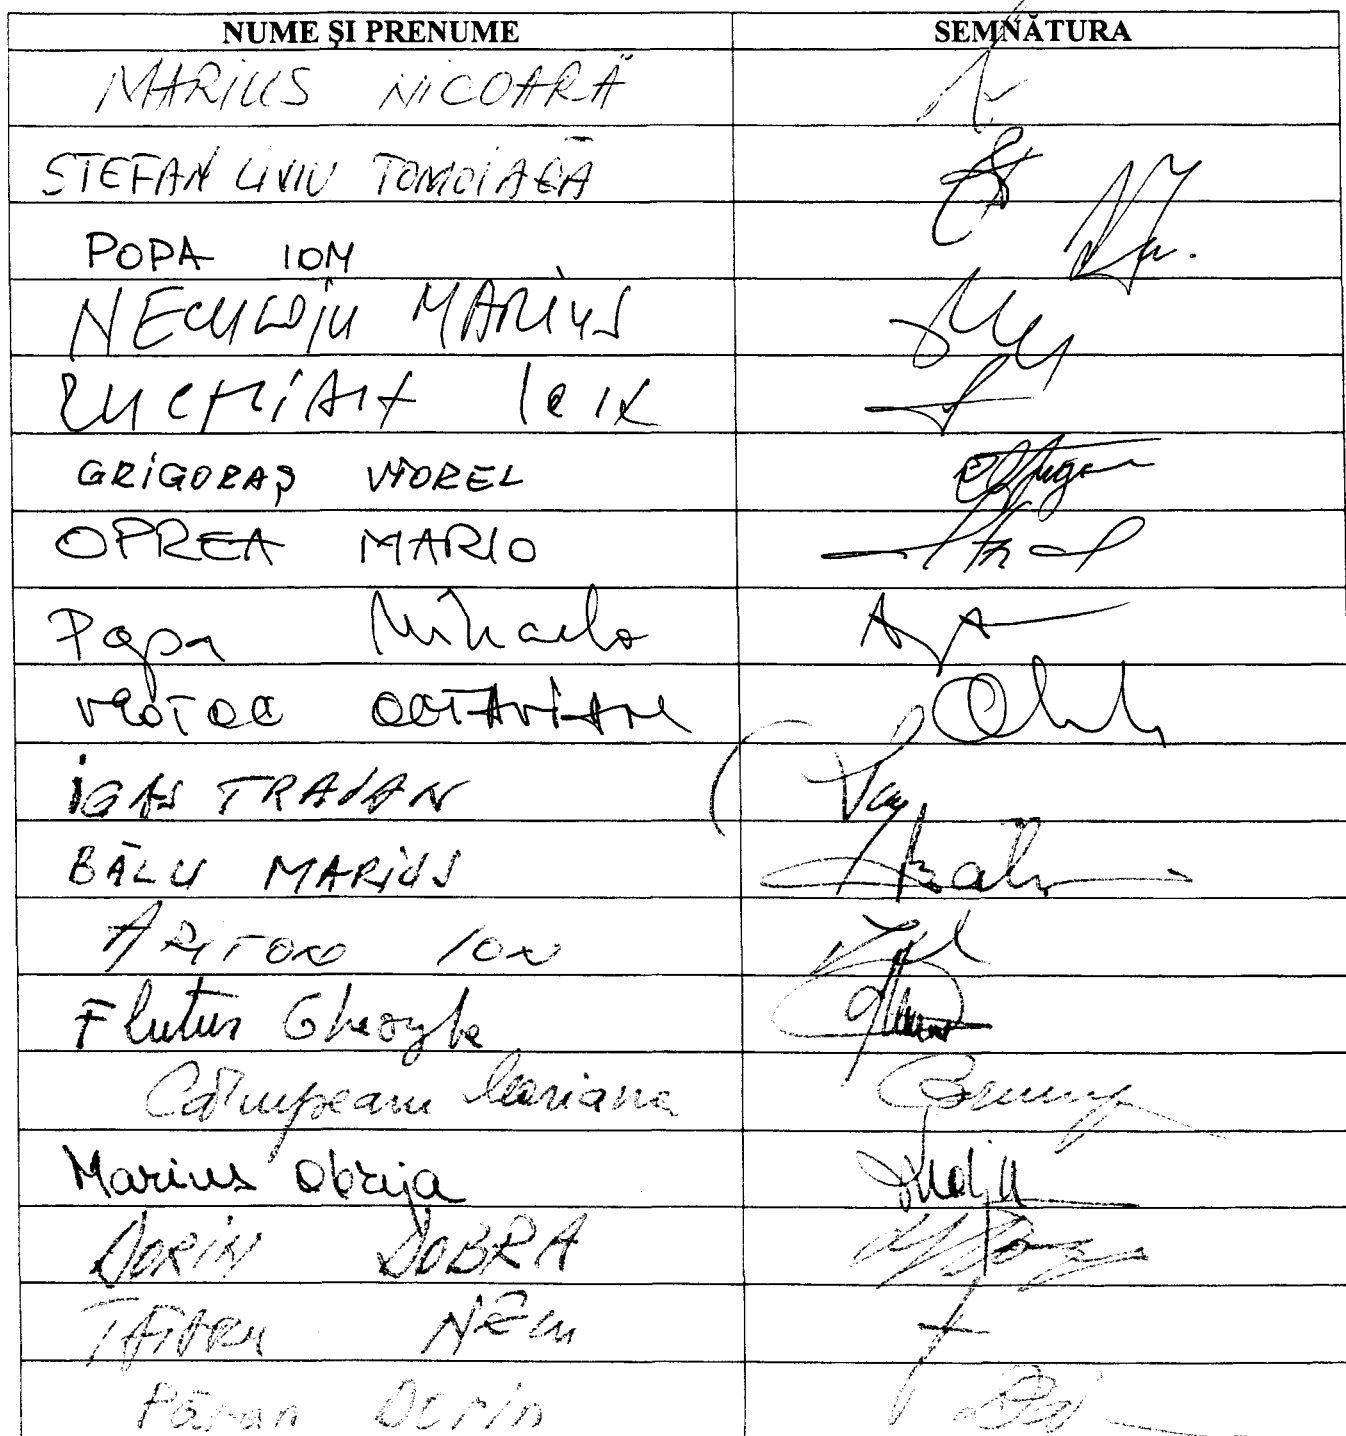 NUME ŞI PRENUME SEMNĂTURA
MARIUS NICOARĂ
STEFAN LIVIU TOMOIAGĂ
POPA ION
NECULOIU MARIUS
GRIGORAŞ VIOREL
OPREA MARIO
Popa Mihaela
VLOTOC OCTAVIAN
IGAS TRAIAN
BĂLU MARIUS
ARITON ION
Flutur Gheorghe
Câmpeanu Mariana
Marius Obreja
DORIN DOBRA
TĂTARU NELU
Păran Dorin